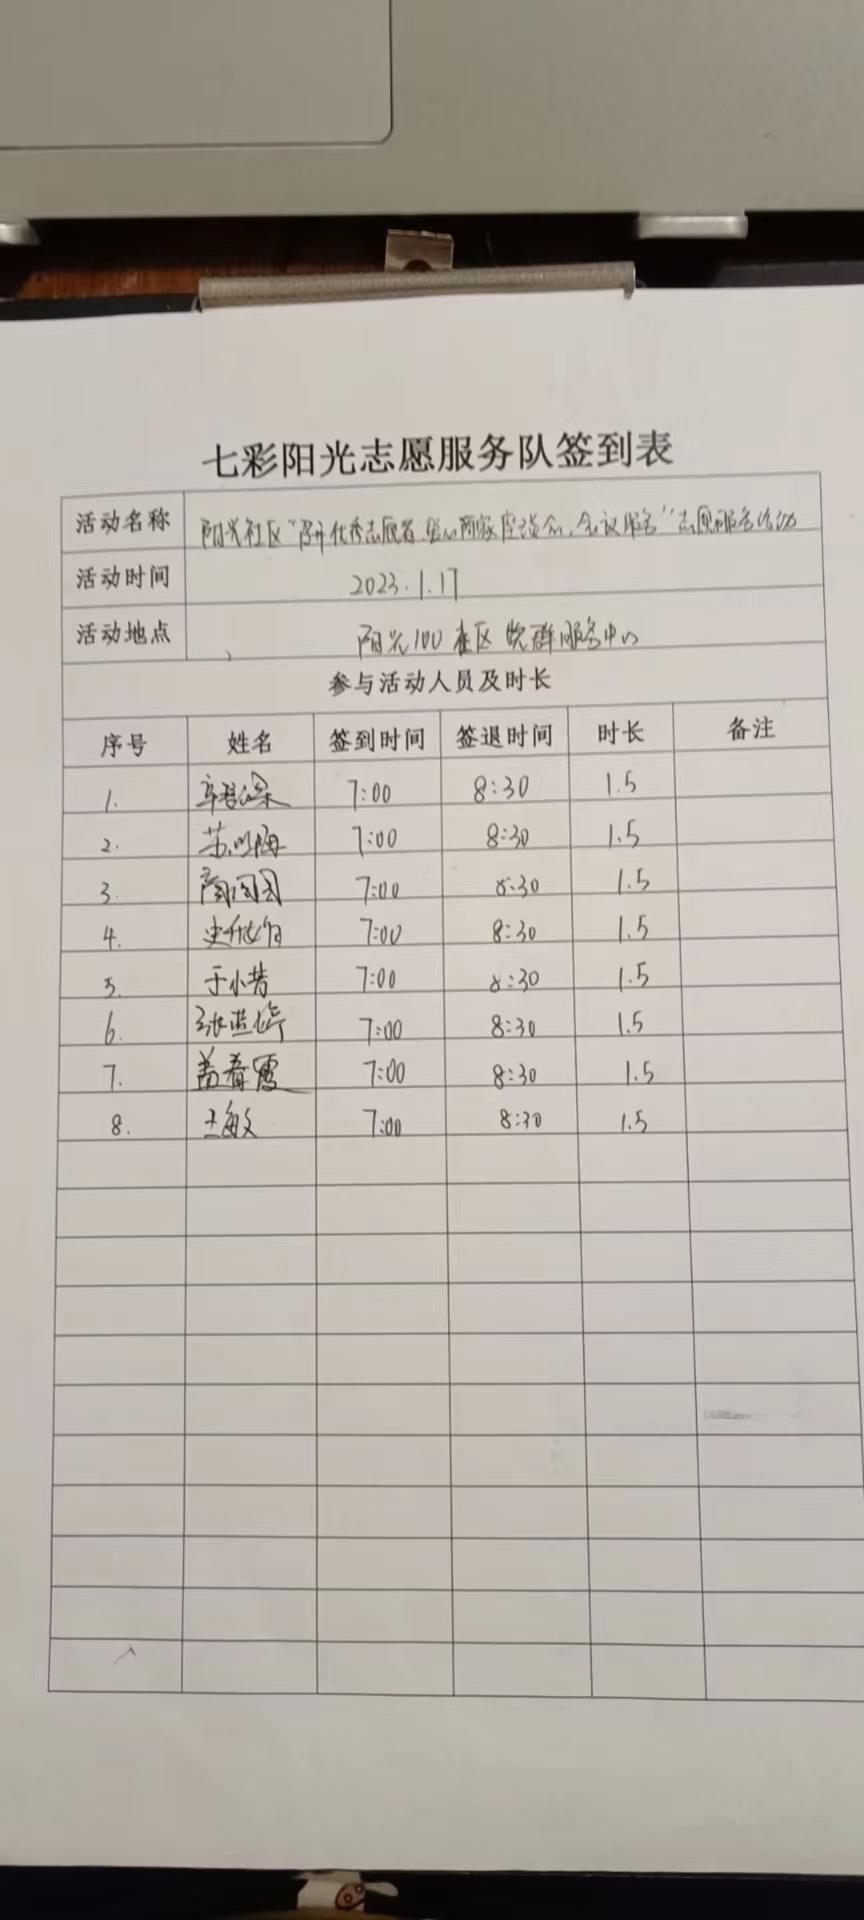 七彩阳光志愿服务队签到表
活动名称 阳光社区"召开优秀志愿者、爱心商家座谈会,会议服务"志愿服务活动
活动时间 2023.1.17
活动地点 阳光100社区党群服务中心
参与活动人员及时长
序号 姓名 签到时间 签退时间 时长 备注
1. 7:00 8:30 1.5
2. 苏 梅 7:00 8:30 1.5
3. 商园园 7:00 8:30 1.5
4. 史 7:00 8:30 1.5
5. 于小昔 7:00 8:30 1.5
6. 张 婷 7:00 8:30 1.5
7. 盖春霞 7:00 8:30 1.5
8. 王敏 7:00 8:30 1.5